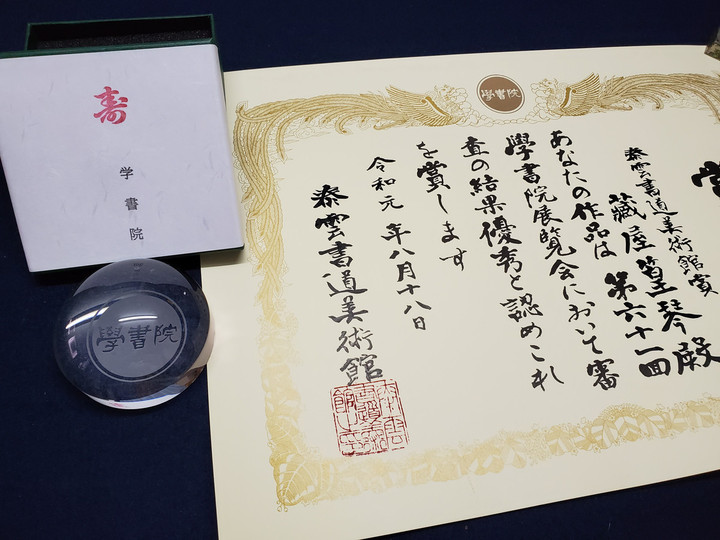 寿
学書院
學書院
學書院
賞
泰雲書道美術館賞
藏屋篁琴殿
あなたの作品は第六十一回
學書院展覧会において審
査の結果優秀と認めこれ
を賞します
令和元年八月十八日
泰雲書道美術館